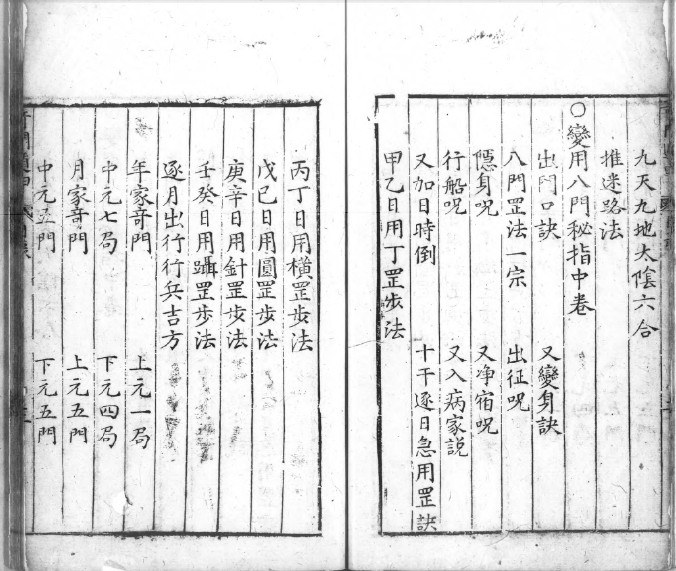 九天九地太陰六合
推迷路法
○變用八門秘指中卷
出門口訣　又變身訣
八門罡法一宗　出征呪
隱身呪　又净宿呪
行船呪　又入病家説
又加日時倒　十干逐日急用罡訣
甲乙日用丁罡步法
丙丁日用橫罡步法
戊巳日用圓罡步法
庚辛日用針罡步法
壬癸日用躡罡步法
逐月出行行兵吉方
年家竒門　上元一局
中元七局　下元四局
月家竒門　上元五門
中元五門　下元五門